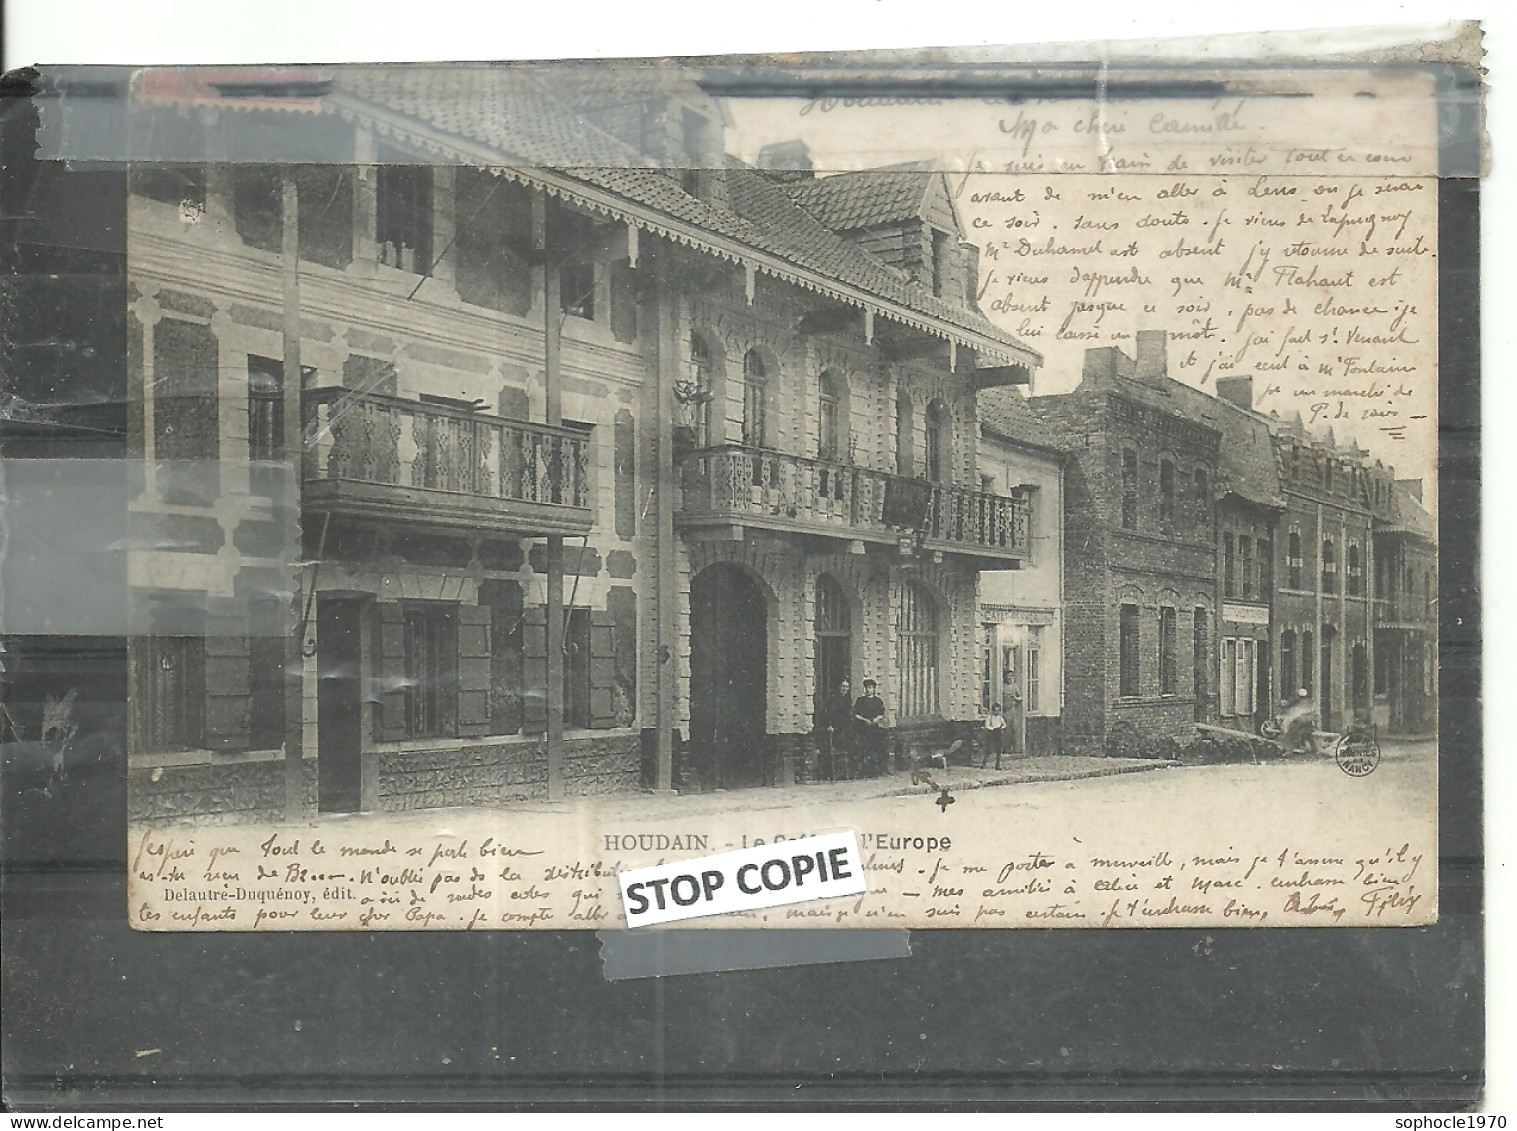 Houdain
Ma chère Camille.
Je suis en train de visiter tout ce coin
avant de m'en aller à Lens où je serai
ce soir. sans doute. Je viens de Lapugnoy
Mr Duhamel est absent j'y retourne de suite.
Je viens d'apprendre que Mr Flahaut est
absent jusque ce soir, pas de chance : je
lui laisse un mot. J'ai fait St Venant
et j'ai écrit à Mr Fontaine
P. de Cais
HOUDAIN. - Le l'Europe
STOP COPIE
J'espère que tout le monde se porte bien
as-tu reçu de N'oublie pas de la distribution Je me porte à merveille, mais je t'assure qu'il y
Delautre-Duquénoy, édit. a ici de rudes côtes qui mes amitiés à Alice et Marc. embrasse bien
les enfants pour leur cher Papa. Je compte aller mais je n'en suis pas certain. Je t'embrasse bien, Félix
RÉUNIES
NANCY
sophocle1970